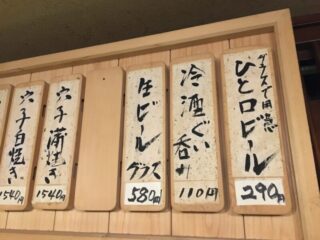 グラスで用意
ひと口ビール
290円
冷酒ぐい
呑み
110円
生ビール
グラス
580円
穴子蒲焼き
1540円
穴子白焼き
1540円